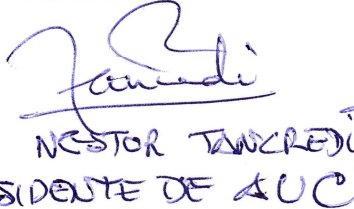 Tancredi
NESTOR TANCREDI
SIDENTE DE AUC